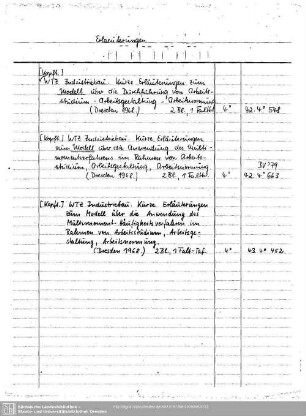 Erläuterungen
[Kopft.]
WTZ Industriebau. Kurze Erläuterungen zum
Modell über die Durchführung von Arbeits-
studium - Arbeitsgestaltung - Arbeitsnormung
(Dresden 1968.) 2 Bl., 1 Falttaf. 4° 42. 4°
[Kopft.] WTZ Industriebau. Kurze Erläuterungen
zum Modell über die Anwendung des Multi-
momentverfahrens im Rahmen von Arbeits-
studium, Arbeitsgestaltung, Arbeitsnormung
(Dresden 1968) 2 Bl. 4° 42. 4° 663
[Kopft.] WTZ Industriebau. Kurze Erläuterungen
zum Modell über die Anwendung des
Multimoment-Häufigkeitsverfahren im
Rahmen von Arbeitsstudium, Arbeitsge-
staltung, Arbeitsnormung.
(Dresden 1968.) 2 Bl., 1 Falt-Taf. 4° 43. 4° 452